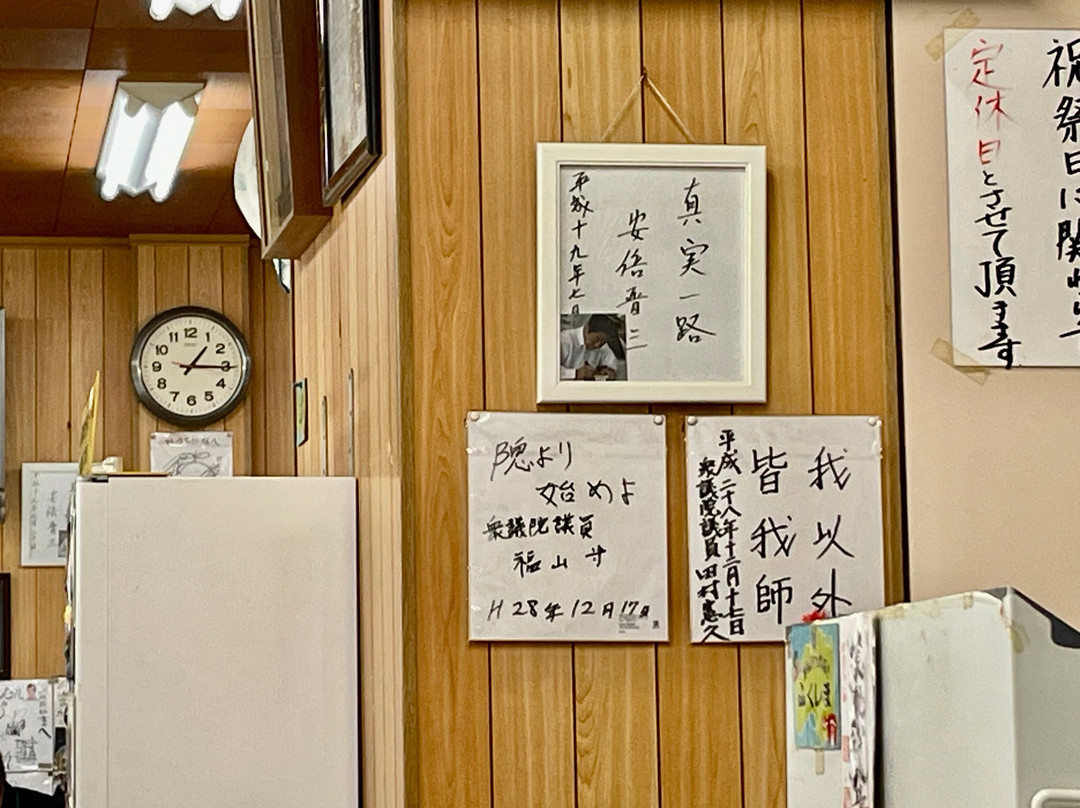 祝祭日に関
定休日とさせて頂きます
真実一路
安倍晋三
平成十九年七月
隗より
始めよ
衆議院議員
福山守
H28年12月17日
我以外
皆我師
平成二十八年十二月十七日
衆議院議員 田村憲久
ふくしま
12
1
2
3
4
5
6
7
8
9
10
11